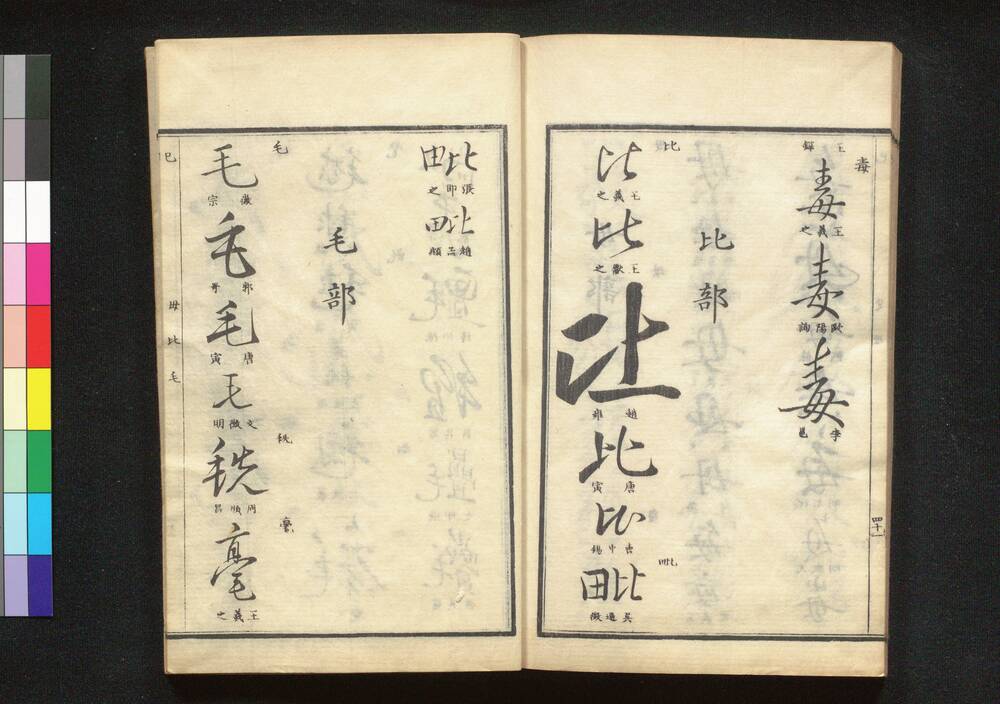 毒
王鐸
毒
王羲之
毒
歐陽詢
毒
李邕
四十一
比部
比
比
王羲之
比
王獻之
比
趙雍
比
唐寅
比
毗
毗
毗
張即之
毗
趙孟頫
毛部
毛
毛
徽宗
毛
毛
唐寅
毛
文徵明
毨
毨
周順昌
毫
毫
王羲之
巳
毋
比
毛